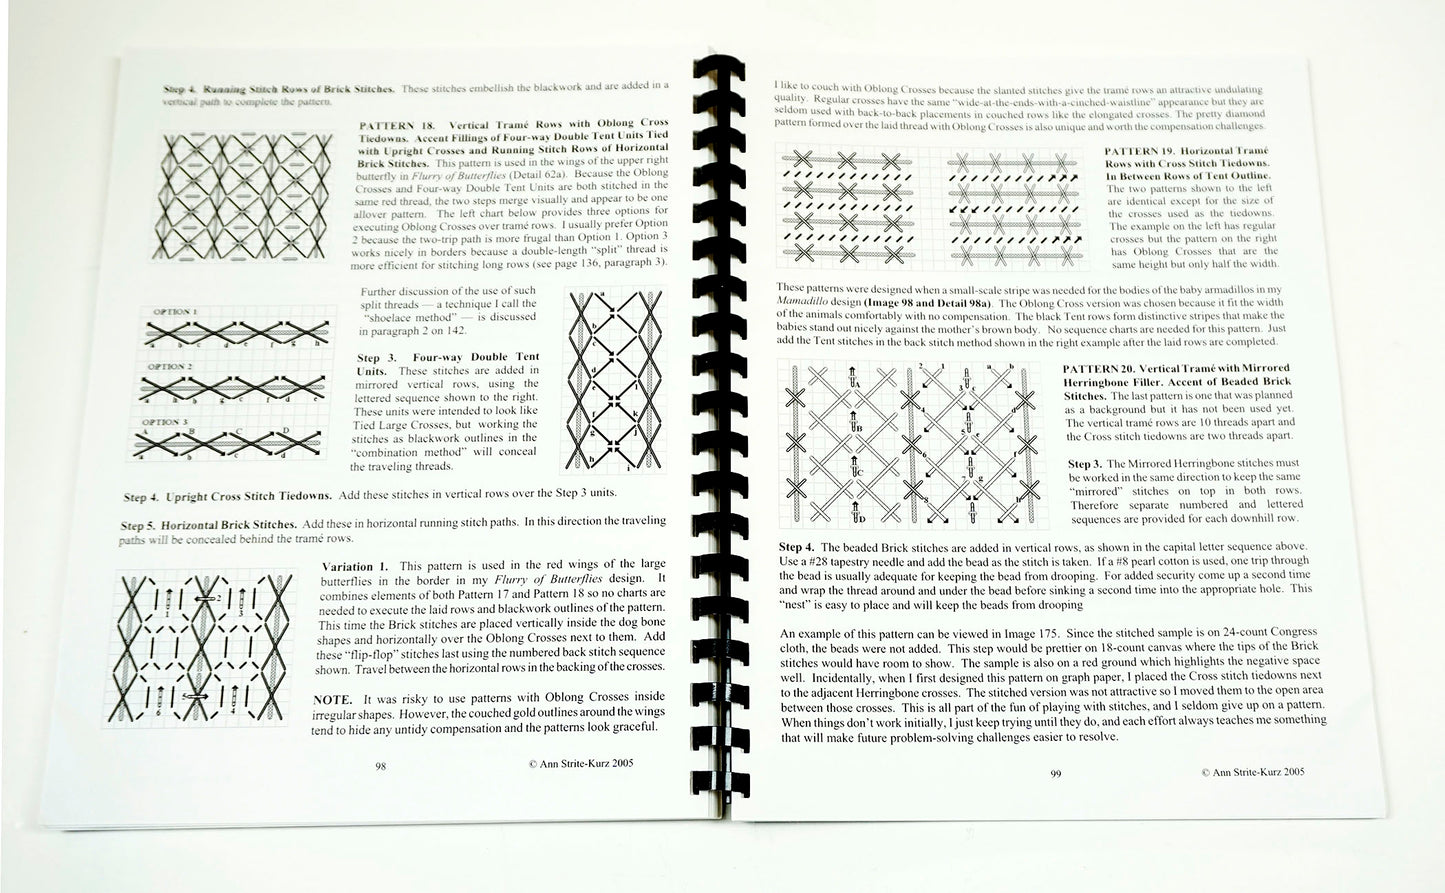 Step 4. Running Stitch Rows of Brick Stitches. These stitches embellish the blackwork and are added in a
vertical path to complete the pattern.
PATTERN 18. Vertical Tramé Rows with Oblong Cross
Tiedowns. Accent Fillings of Four-way Double Tent Units Tied
with Upright Crosses and Running Stitch Rows of Horizontal
Brick Stitches. This pattern is used in the wings of the upper right
butterfly in Flurry of Butterflies (Detail 62a). Because the Oblong
Crosses and Four-way Double Tent Units are both stitched in the
same red thread, the two steps merge visually and appear to be one
allover pattern. The left chart below provides three options for
executing Oblong Crosses over tramé rows. I usually prefer Option
2 because the two-trip path is more frugal than Option 1. Option 3
works nicely in borders because a double-length "split" thread is
more efficient for stitching long rows (see page 136, paragraph 3).
Further discussion of the use of such
split threads — a technique I call the
"shoelace method" — is discussed
in paragraph 2 on 142.
OPTION 1
a b c d e f g h
OPTION 2
a h b g c f d e
OPTION 3
A B C D
a b c d
Step 3. Four-way Double Tent
Units. These stitches are added in
mirrored vertical rows, using the
lettered sequence shown to the right.
These units were intended to look like
Tied Large Crosses, but working the
stitches as blackwork outlines in the
"combination method" will conceal
the traveling threads.
a
b
d
e
f k
g j
h i
Step 4. Upright Cross Stitch Tiedowns. Add these stitches in vertical rows over the Step 3 units.
Step 5. Horizontal Brick Stitches. Add these in horizontal running stitch paths. In this direction the traveling
paths will be concealed behind the tramé rows.
1 2 3
6 5 4
Variation 1. This pattern is used in the red wings of the large
butterflies in the border in my Flurry of Butterflies design. It
combines elements of both Pattern 17 and Pattern 18 so no charts are
needed to execute the laid rows and blackwork outlines of the pattern.
This time the Brick stitches are placed vertically inside the dog bone
shapes and horizontally over the Oblong Crosses next to them. Add
these "flip-flop" stitches last using the numbered back stitch sequence
shown. Travel between the horizontal rows in the backing of the crosses.
NOTE. It was risky to use patterns with Oblong Crosses inside
irregular shapes. However, the couched gold outlines around the wings
tend to hide any untidy compensation and the patterns look graceful.
98
© Ann Strite-Kurz 2005
I like to couch with Oblong Crosses because the slanted stitches give the tramé rows an attractive undulating
quality. Regular crosses have the same "wide-at-the-ends-with-a-cinched-waistline" appearance but they are
seldom used with back-to-back placements in couched rows like the elongated crosses. The pretty diamond
pattern formed over the laid thread with Oblong Crosses is also unique and worth the compensation challenges.
PATTERN 19. Horizontal Tramé
Rows with Cross Stitch Tiedowns.
In Between Rows of Tent Outline.
The two patterns shown to the left
are identical except for the size of
the crosses used as the tiedowns.
The example on the left has regular
crosses but the pattern on the right
has Oblong Crosses that are the
same height but only half the width.
These patterns were designed when a small-scale stripe was needed for the bodies of the baby armadillos in my
Mamadillo design (Image 98 and Detail 98a). The Oblong Cross version was chosen because it fit the width
of the animals comfortably with no compensation. The black Tent rows form distinctive stripes that make the
babies stand out nicely against the mother's brown body. No sequence charts are needed for this pattern. Just
add the Tent stitches in the back stitch method shown in the right example after the laid rows are completed.
2 1 a b
A 3 c
4 d
B 5 e
6 f
C 7 g
8 h
D
PATTERN 20. Vertical Tramé with Mirrored
Herringbone Filler. Accent of Beaded Brick
Stitches. The last pattern is one that was planned
as a background but it has not been used yet.
The vertical tramé rows are 10 threads apart and
the Cross stitch tiedowns are two threads apart.
Step 3. The Mirrored Herringbone stitches must
be worked in the same direction to keep the same
"mirrored" stitches on top in both rows.
Therefore separate numbered and lettered
sequences are provided for each downhill row.
Step 4. The beaded Brick stitches are added in vertical rows, as shown in the capital letter sequence above.
Use a #28 tapestry needle and add the bead as the stitch is taken. If a #8 pearl cotton is used, one trip through
the bead is usually adequate for keeping the bead from drooping. For added security come up a second time
and wrap the thread around and under the bead before sinking a second time into the appropriate hole. This
"nest" is easy to place and will keep the beads from drooping
An example of this pattern can be viewed in Image 175. Since the stitched sample is on 24-count Congress
cloth, the beads were not added. This step would be prettier on 18-count canvas where the tips of the Brick
stitches would have room to show. The sample is also on a red ground which highlights the negative space
well. Incidentally, when I first designed this pattern on graph paper, I placed the Cross stitch tiedowns next
to the adjacent Herringbone crosses. The stitched version was not attractive so I moved them to the open area
between those crosses. This is all part of the fun of playing with stitches, and I seldom give up on a pattern.
When things don't work initially, I just keep trying until they do, and each effort always teaches me something
that will make future problem-solving challenges easier to resolve.
99
© Ann Strite-Kurz 2005